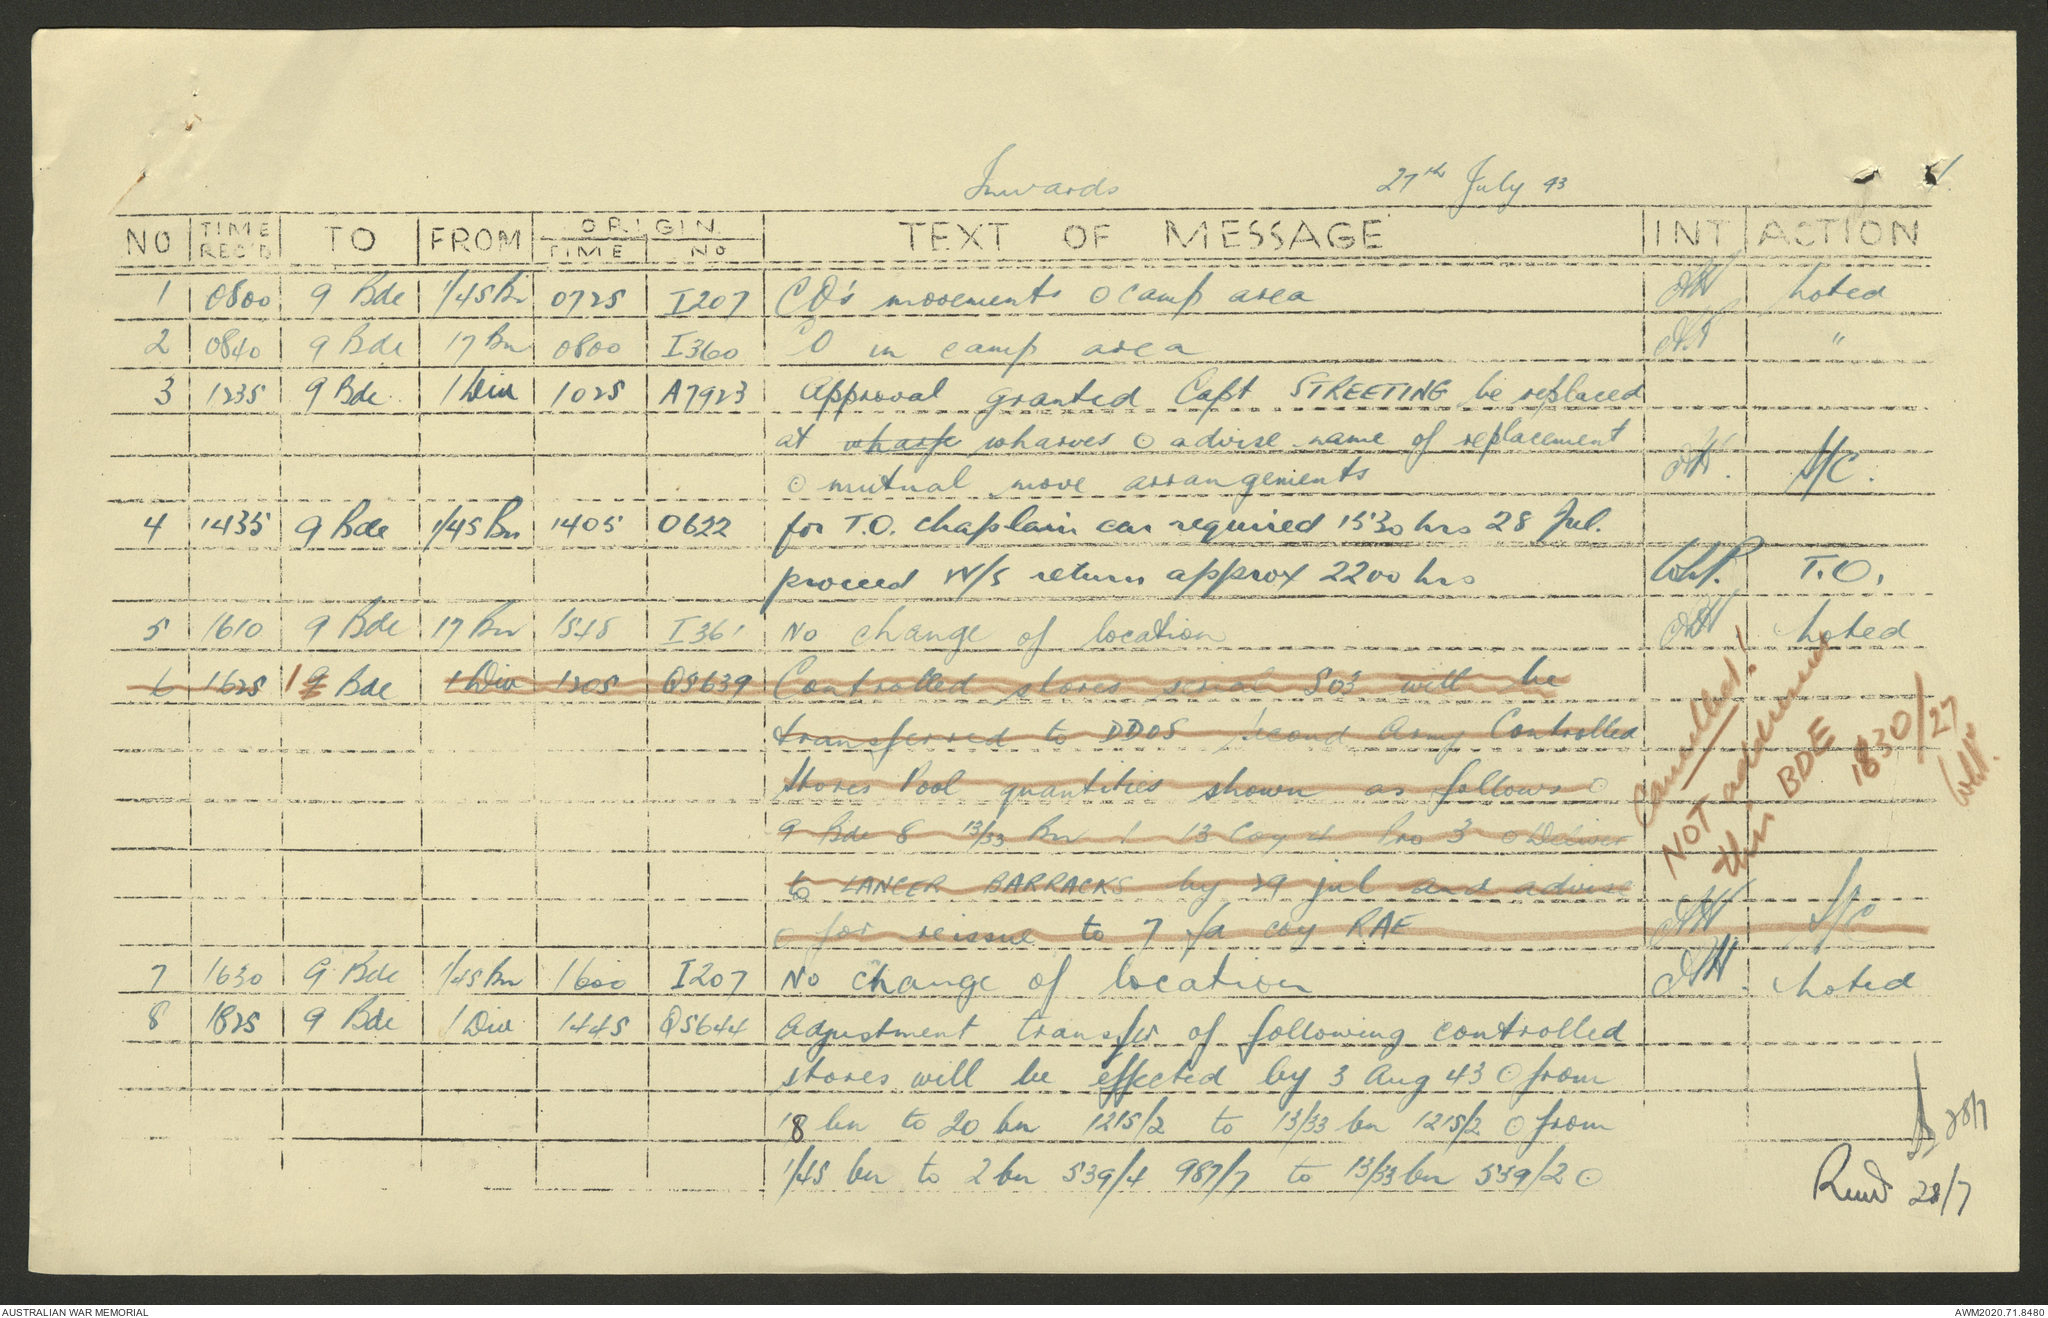 Inwards 27th July 43 1.
NO TIME REC'D TO FROM ORIGIN TIME NO TEXT OF MESSAGE INT ACTION
1 0800 9 Bde 1/45 Bn 0725 I207 CO's movements ⊙ camp area noted
2 0840 9 Bde 17 Bn 0800 I360 CO in camp area "
3 1235 9 Bde 1 Div 1025 A7923 Approval granted Capt STREETING be replaced
at wharfe wharves ⊙ advise name of replacement
⊙ mutual move arrangements S/C.
4 1435 9 Bde 1/45 Bn 1405 O622 for T.O. chaplain car required 1530 hrs 28 Jul.
proceed W/S return approx 2200 hrs T.O.
5 1610 9 Bde 17 Bn 1545 I361 No change of location noted
6 1625 1 9 Bde 1 Div 1205 Q5639 Controlled stores serial 503 will be
transferred to DDOS Second Army Controlled
Stores Pool quantities shown as follows ⊙
9 Bde 8 13/33 Bn 1 13 Coy 4 Pro 3 ⊙ Deliver
to LANCER BARRACKS by 29 jul and advise
⊙ for reissue to 7 fd coy RAE S/C
Cancelled!
NOT addressed
this BDE
1830/27
7 1630 9 Bde 1/45 Bn 1600 I207 No change of location noted
8 1825 9 Bde 1 Div 1445 Q5644 Adjustment transfer of following controlled
stores will be effected by 3 Aug 43 ⊙ from
18 bn to 20 bn 1215/2 to 13/33 bn 1215/2 ⊙ from
1/45 bn to 2 bn 539/4 987/7 to 13/33 bn 539/2 ⊙
28/7
28/7
AUSTRALIAN WAR MEMORIAL AWM2020.71.8480